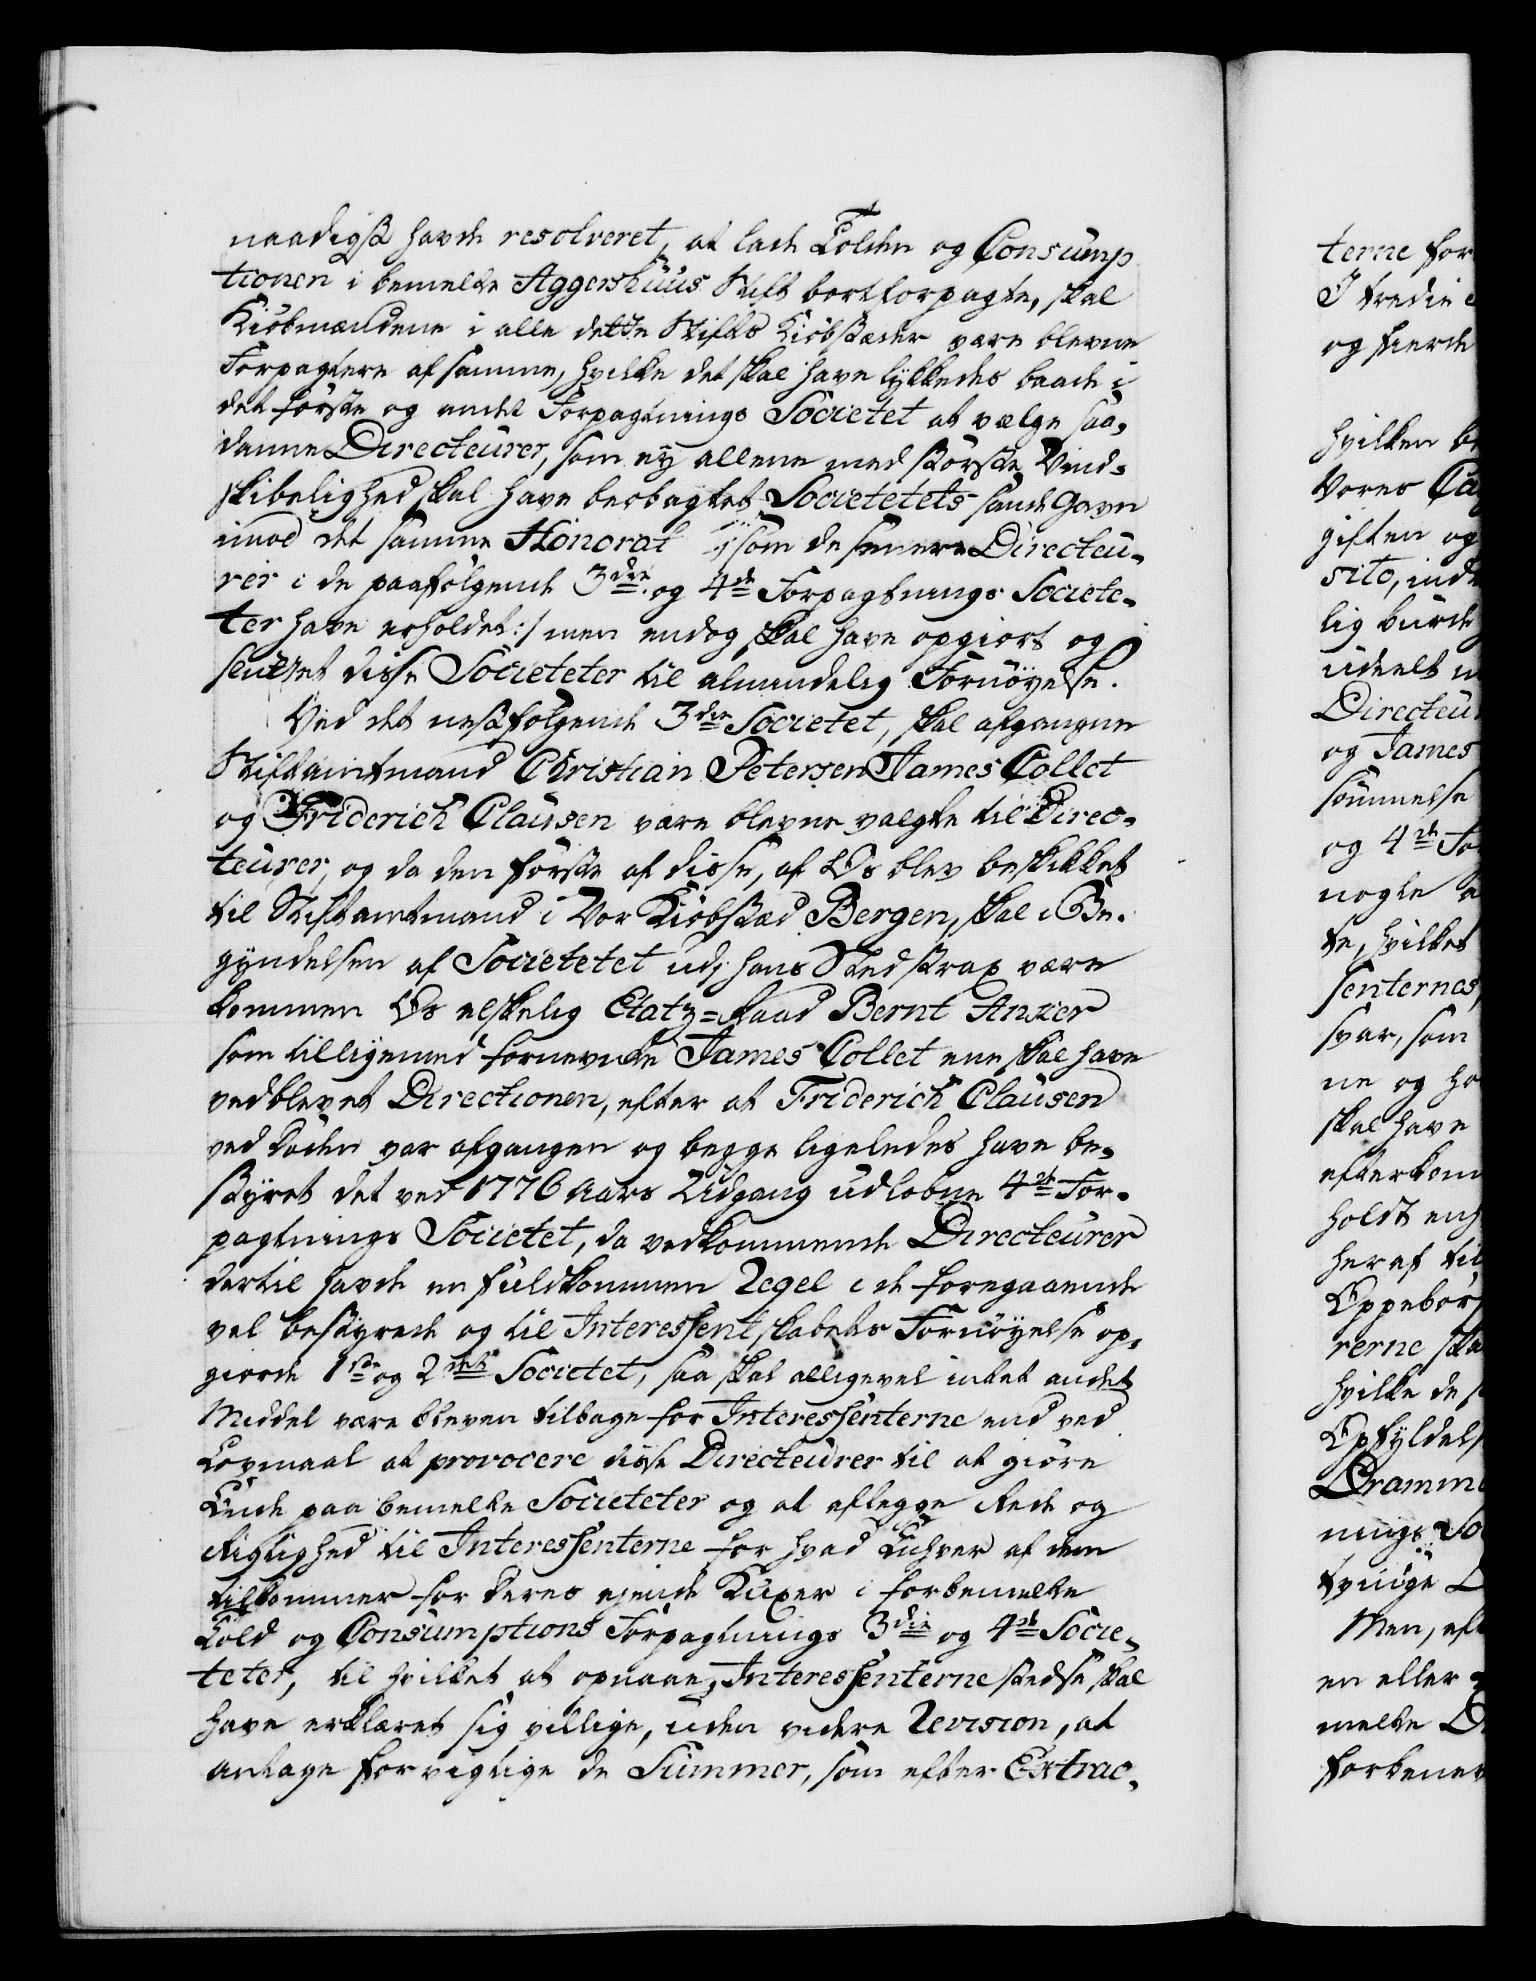 naadigst havde resolveret, at lade Tolden og Consump
tionen i bemelte Aggershuus Stift bortforpagte, skal
Kiöbmændene i alle dette Stifts Kiöbstæder være blevne
Forpagtere af samme, hvilke det skal have lykkedes baade i
det förste og andet Forpagtnings Societet at vælge saa-
danne Directeurer, som ey allene med störste Vind-
skibelighed skal have beobagtet Societetets sande Gavn
imod det samme Honorar /:som de senere Directeu-
rer i de paafölgende 3die og 4de Forpagtnings Societe-
ter have erholdet:/ men endog skal have opgiort og
sluttet disse Societeter til almindelig Fornöyelse.
Ved det nestfölgende 3die Societet, skal afgangne
Stiftamtmand Christian Petersen James Collet
og Friderich Clausen være blevne valgte til Direc-
teurer, og da den förste af disse, af Os blev beskikket
til Stiftamtmand i Vor Kiöbstæd Bergen, skal i Be-
gyndelsen af Societetet udj hans Sted strax være
kommen Os elskelig Etatz-Raad Bernt Anker
som tilligemed fornevnte James Collet ene skal have
vedblevet Directionen, efter at Friderich Clausen
ved Döden var afgangen og begge ligeledes have be-
styret det ved 1776 Aars Udgang udlobne 4de For-
pagtnings Societet, da vedkommende Directeurer
dertil havde en fuldkommen Regel i de foregaaende
vel bestyrede og til Interessentskabets Fornöyelse op-
giorde 1ste og 2det Societet, saa skal alligevel intet andet
Middel være bleven tilbage for Interessenterne end ved
Lovmaal at provocere disse Directeurer til at giöre
Ende paa bemelte Societeter og at aflegge Rede og
Rigtighed til Interessenterne for hvad Enhver af dem
tilkommer for deres ejende Kuxer i forbemelte
Told og Consumptions Forpagtnings 3die og 4de Socie-
teter, til hvilket at opnaae, Interessenterne stedse skal
have erklæret sig villige, uden videre Revision, at
antage for rigtige de Summer, som efter Extrac-
terne for
I tredie
og fierde
hvilken
Vores
giften og
sito, ind
lig burde
udeelt
Directeu
og James
sömmelse
og 4de Fo
nogle
te, hvilket
senternes
svar, som
ne og ha
skal have
efterkom
holdt
heraf til
Oppebör
rerne ska
hvilke de
Opfyldels
Dramm
nings So
tvinge
Men, eft
en eller
melte
forbenev